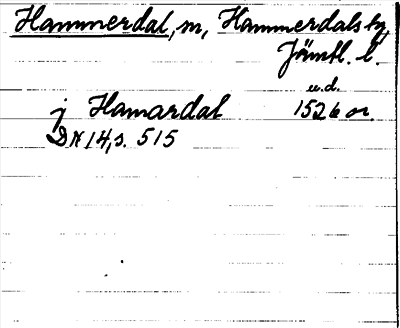 Hammerdal, m, Hammerdals tg,
Jämtl. l.
u.d.
j Hamardal 1526 or.
DN 14, s. 515